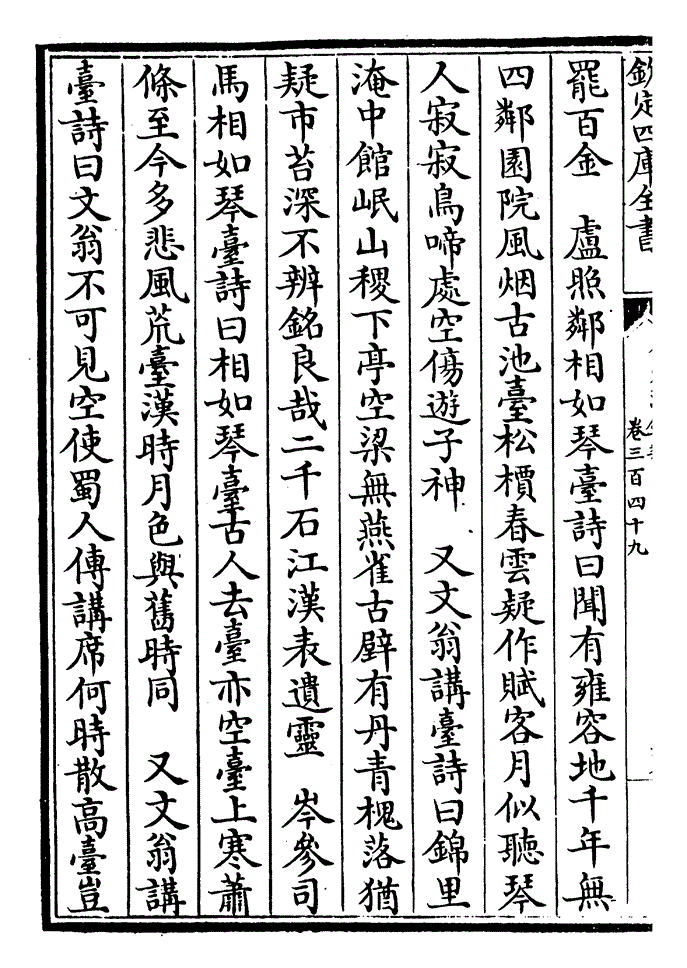 欽定四庫全書
卷三百四十九
罷百金　盧照鄰相如琴臺詩曰聞有雍容地千年無
四鄰園院風烟古池臺松檟春雲疑作賦客月似聽琴
人寂寂鳥啼處空傷遊子神　又文翁講臺詩曰錦里
淹中館岷山稷下亭空梁無燕雀古壁有丹青槐落猶
疑市苔深不辨銘良哉二千石江漢表遺靈　岑參司
馬相如琴臺詩曰相如琴臺古人去臺亦空臺上寒蕭
條至今多悲風荒臺漢時月色與舊時同　又文翁講
臺詩曰文翁不可見空使蜀人傳講席何時散高臺豈